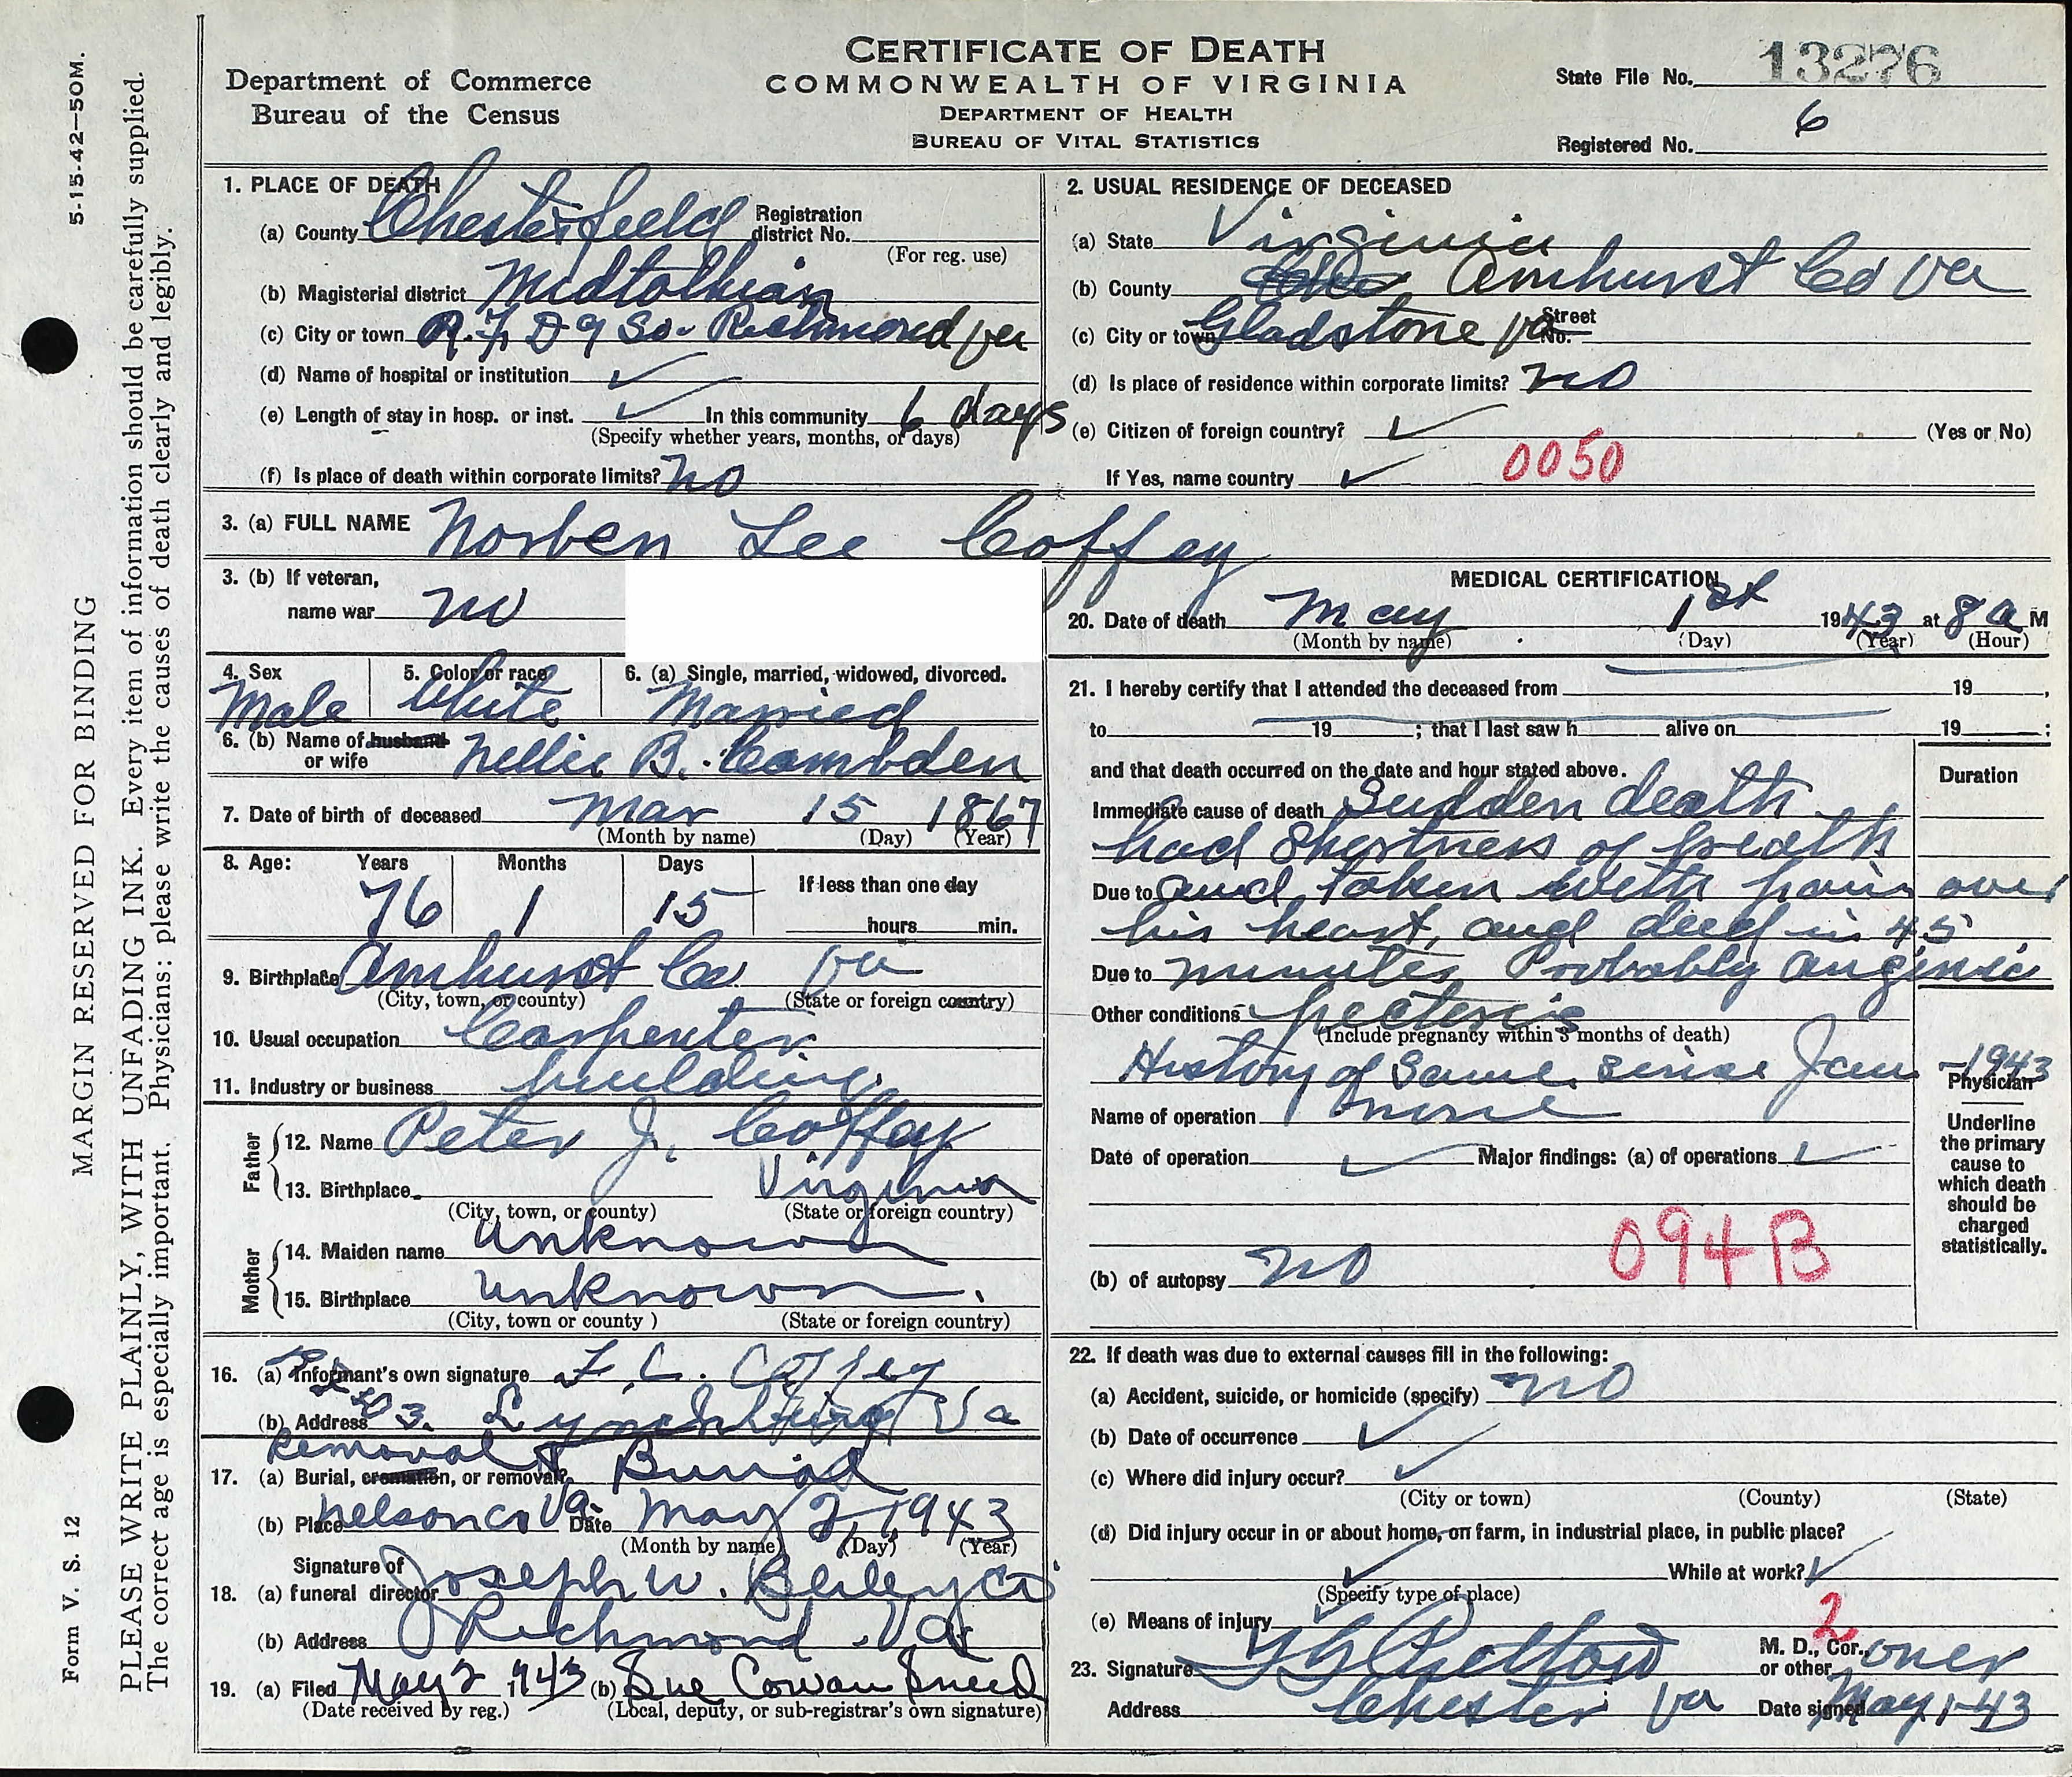 CERTIFICATE OF DEATH
COMMONWEALTH OF VIRGINIA
DEPARTMENT OF HEALTH
BUREAU OF VITAL STATISTICS
Department of Commerce
Bureau of the Census
State File No. 13276
Registered No. 6
5-15-42-50M.
MARGIN RESERVED FOR BINDING
PLEASE WRITE PLAINLY, WITH UNFADING INK. Every item of information should be carefully supplied.
The correct age is especially important. Physicians: please write the causes of death clearly and legibly.
Form V. S. 12
1. PLACE OF DEATH
(a) County Chesterfield Registration district No.
(For reg. use)
(b) Magisterial district Midtolhian
(c) City or town R.F.D 9 So. Richmond Va
(d) Name of hospital or institution ✓
(e) Length of stay in hosp. or inst. ✓ In this community 6 days
(Specify whether years, months, or days)
(f) Is place of death within corporate limits? No
2. USUAL RESIDENCE OF DECEASED
(a) State Virginia
(b) County Amhurst Co Va
(c) City or town Gladstone Va Street No.
(d) Is place of residence within corporate limits? No
(e) Citizen of foreign country? ✓ (Yes or No)
If Yes, name country ✓ 0050
3. (a) FULL NAME Norben Lee Coffey
3. (b) If veteran,
name war no
4. Sex Male
5. Color or race White
6. (a) Single, married, widowed, divorced. Married
6. (b) Name of husband or wife Nellie B. Cambden
7. Date of birth of deceased Mar 15 1867
(Month by name) (Day) (Year)
8. Age: Years Months Days If less than one day
76 1 15 hours min.
9. Birthplace Amhurst Co Va
(City, town, or county) (State or foreign country)
10. Usual occupation Carpenter
11. Industry or business building
Father
12. Name Peter J. Coffey
13. Birthplace Virginia
(City, town, or county) (State or foreign country)
Mother
14. Maiden name Unknown
15. Birthplace Unknown
(City, town or county) (State or foreign country)
16. (a) Informant's own signature F. L. Coffey
(b) Address 3. Lynchburg Va
Removal &
17. (a) Burial, cremation, or removal? Burial
(b) Place Nelson Co Va. Date May 2 1943
(Month by name) (Day) (Year)
Signature of
18. (a) funeral director Joseph W. Bliley Co
(b) Address Richmond Va.
19. (a) Filed May 2 1943 (b) Sue Cowan Sneed
(Date received by reg.) (Local, deputy, or sub-registrar's own signature)
MEDICAL CERTIFICATION
20. Date of death May 1st 1943 at 8 a M
(Month by name) (Day) (Year) (Hour)
21. I hereby certify that I attended the deceased from 19 ,
to 19 ; that I last saw h alive on 19 ;
and that death occurred on the date and hour stated above.
Duration
Immediate cause of death Sudden death
had Shortness of breath
Due to and taken with pain over
his heart, and died in 45
Due to minutes Probably anginia
Other conditions pectoris
(Include pregnancy within 3 months of death)
History of same since Jan -1943
Name of operation none
Date of operation ✓ Major findings: (a) of operations ✓
(b) of autopsy no
094B
Physician
Underline
the primary
cause to
which death
should be
charged
statistically.
22. If death was due to external causes fill in the following:
(a) Accident, suicide, or homicide (specify) no
(b) Date of occurrence ✓
(c) Where did injury occur? ✓
(City or town) (County) (State)
(d) Did injury occur in or about home, on farm, in industrial place, in public place?
✓ While at work? ✓
(Specify type of place)
(e) Means of injury ✓
2
23. Signature M. D., Cor. oner
or other
Address Chester Va Date signed May 1-43